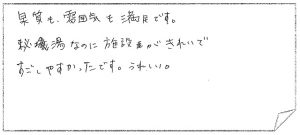 泉質も、雰囲気も満足です。
秘湯なのに施設がきれいで
すごしやすかったです。うれしい。